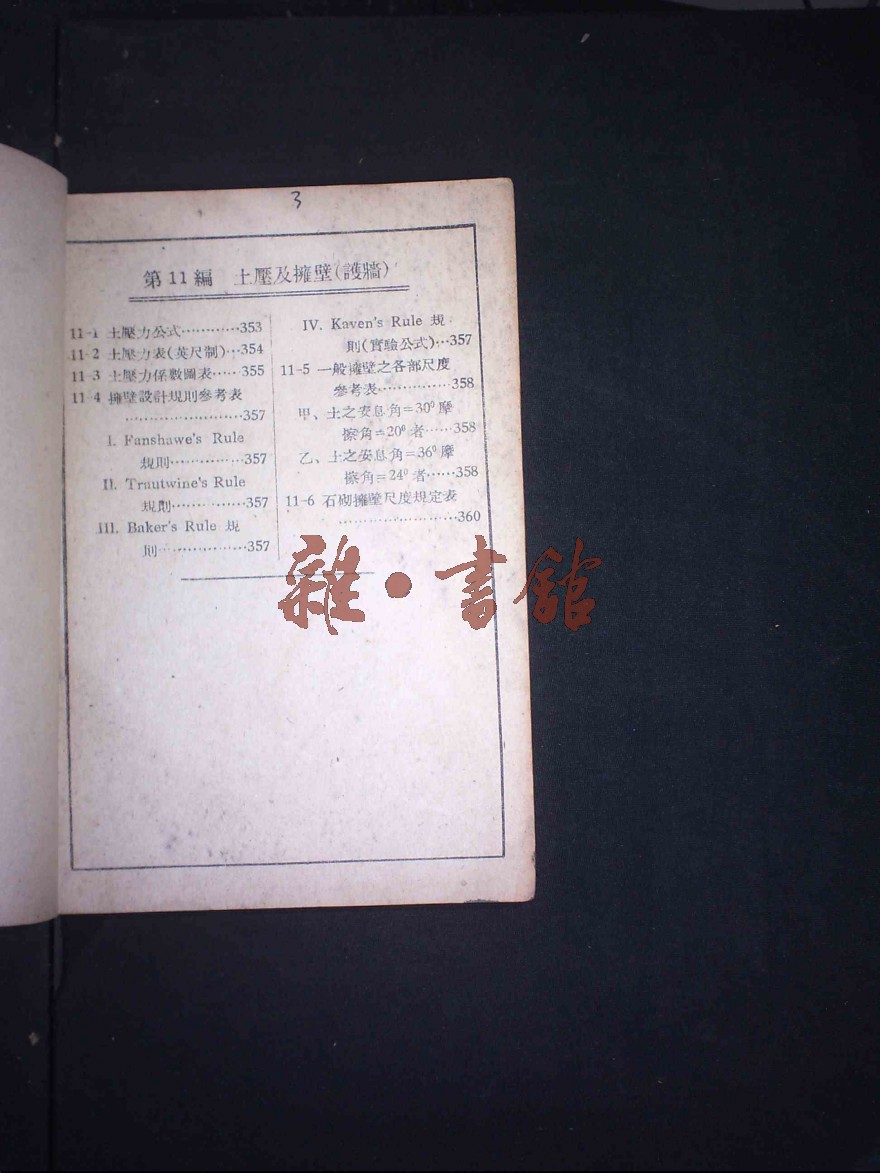 3
第11編 土壓及擁壁(護牆)
11-1 土壓力公式············353
11-2 土壓力表(英尺制)···354
11-3 土壓力係數圖表·····355
11-4 擁壁設計規則參考表
························357
I. Fanshawe's Rule
規則···············357
II. Trautwine's Rule
規則···············357
III. Baker's Rule 規
則··················357
IV. Kaven's Rule 規
則(實驗公式)···357
11-5 一般擁壁之各部尺度
參考表···············358
甲、土之安息角=30⁰摩
擦角=20⁰者······358
乙、土之安息角=36⁰摩
擦角=24⁰者······358
11-6 石砌擁壁尺度規定表
························360
雜·書館